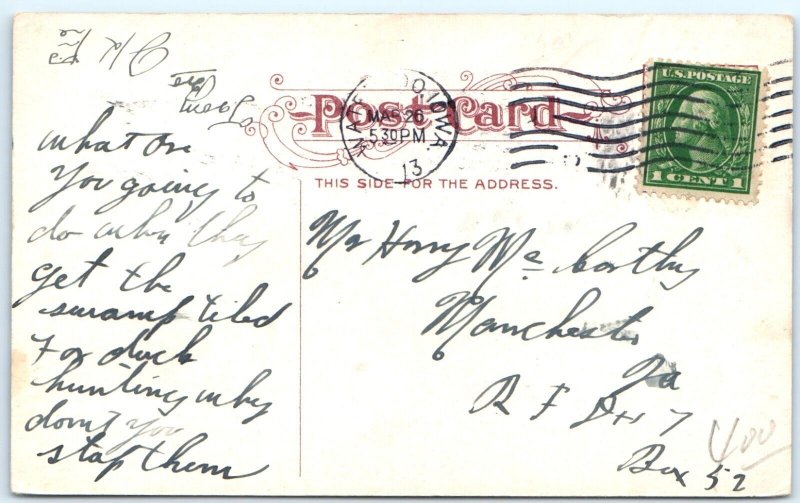 Post Card
WATERLOO, IOWA
MAR 26
5 30 PM
13
U.S. POSTAGE
1 CENT 1
THIS SIDE FOR THE ADDRESS.
what are
you going to
do when they
get the
swamp tiled
For duck
hunting why
dont you
stop them
Mr Harry Mc Carthy
Manchester
Ia
R F D # 7
Box 52
400